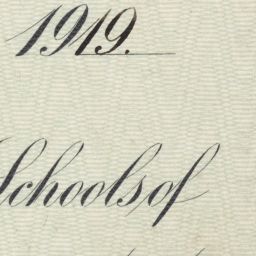 1919.
Schools of